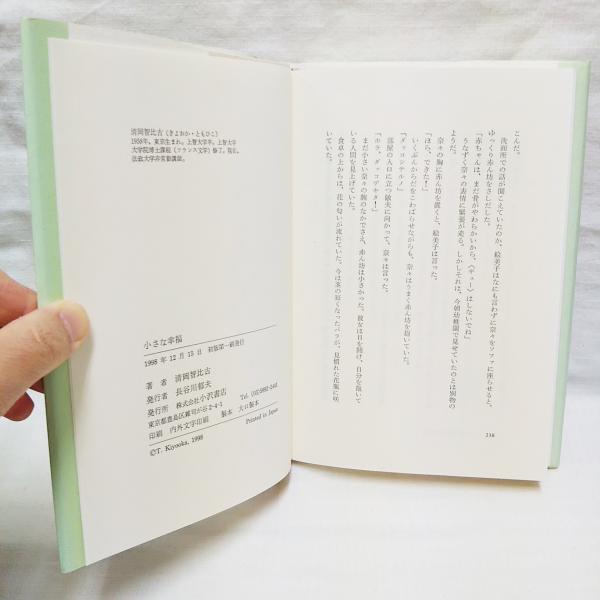 こんだ。
洗面所での話が聞こえていたのか、絵美子はなにも言わずに奈々をソファに座らせると、
ゆっくり赤ん坊をさしだした。
「赤ちゃんは、まだ骨がやわらかいから、〈ギュー〉はしないでね」
うなずく奈々の表情に緊張が走る。しかしそれは、今朝幼稚園で見せていたのとは別物の
ようだ。
奈々の胸に赤ん坊を置くと、絵美子は言った。
「ほら、できた！」
いくぶんからだをこわばらせながらも、奈々はうまく赤ん坊を抱いていた。
「ダッコシテルノ」
部屋の入口に立つ敏夫に向かって、奈々は言った。
「ホラ、ダッコデキタ！」
まだ小さい奈々の腕のなかでさえ、赤ん坊は小さかった。彼女は目を開け、自分を抱いて
いる人間を見上げていた。
食卓の上からは、花の匂いが流れていた。今は茎の短くなったバラが、見慣れた花瓶に咲
いていた。
238
清岡智比古（きよおか・ともひこ）
1958年、東京生まれ。上智大学卒。上智大学
大学院博士課程（フランス文学）修了。現在、
法政大学非常勤講師。
小さな幸福
1998年12月15日 初版第一刷発行
著者 清岡智比古
発行者 長谷川郁夫
発行所 株式会社小沢書店
東京都豊島区雑司が谷2-4-1
印刷 内外文字印刷 製本 大口製本
©T. Kiyooka, 1998 Printed in Japan